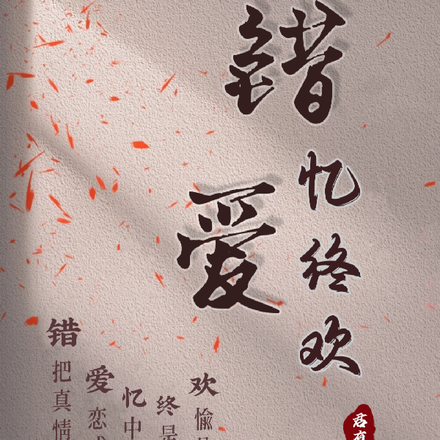 错
爱
忆终欢
错
把真情
爱
恋
忆
中
终
是
欢
愉
君有